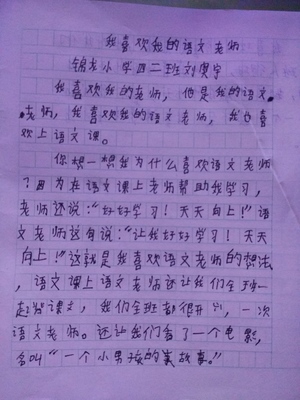 我喜欢我的语文老师
锦龙小学四二班刘奥宇
我喜欢我的老师，他是我的语文
老师，我喜欢我的语文老师，我也喜
欢上语文课。
你想一想我为什么喜欢语文老师
？因为在语文课上老师帮助我学习，
老师还说：“好好学习！天天向上！”语
文老师这句说：“让我好好学习！天天
向上！”这就是我喜欢语文老师的想法
，语文课上语文老师还让我们全班一
起发课文，我们全班都很开心，一次
语文老师。还让我们看了一个电影，
名叫“一个小男孩的美故事。”